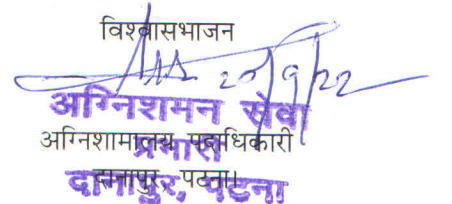 विश्वासभाजन
20/9/22
अग्निशमन सेवा
अग्निशामालय पदाधिकारी
प्रभारी
दानापुर, पटना।
दानापुर, पटना